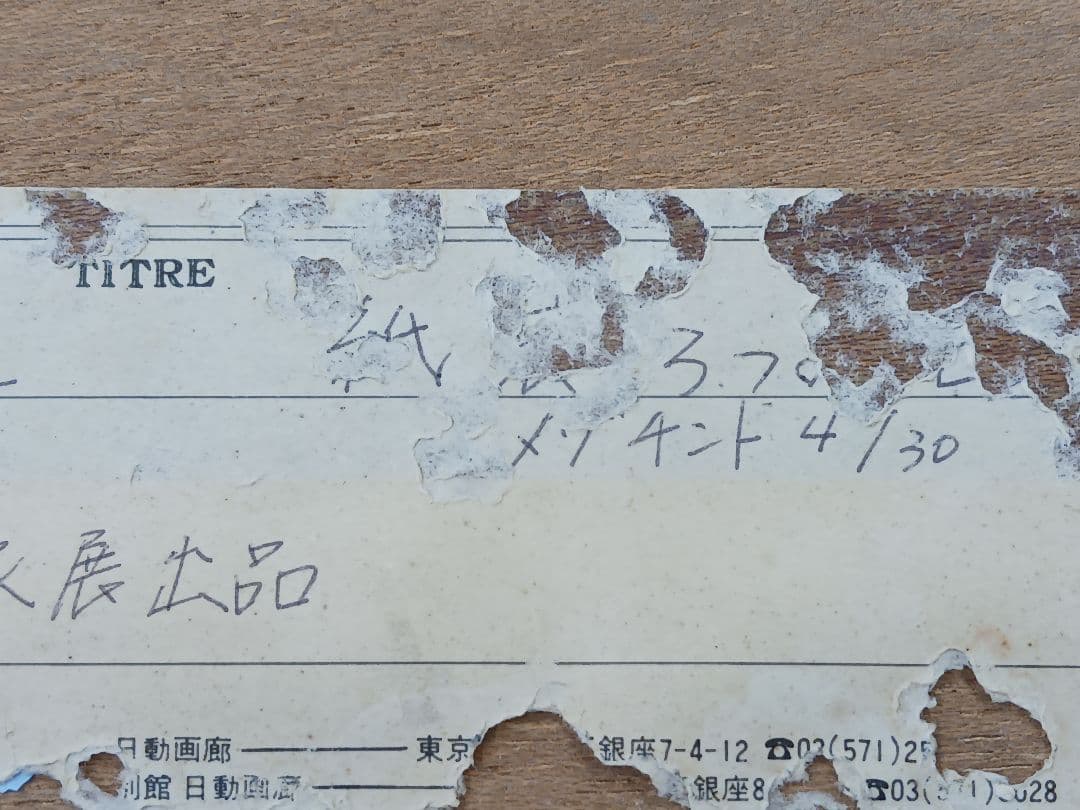 TITRE
紙 3.70
メゾチント 4/30
展出品
日動画廊 東京 銀座7-4-12 ☎03(571)25
別館 日動画廊 銀座8 ☎03(571) 028